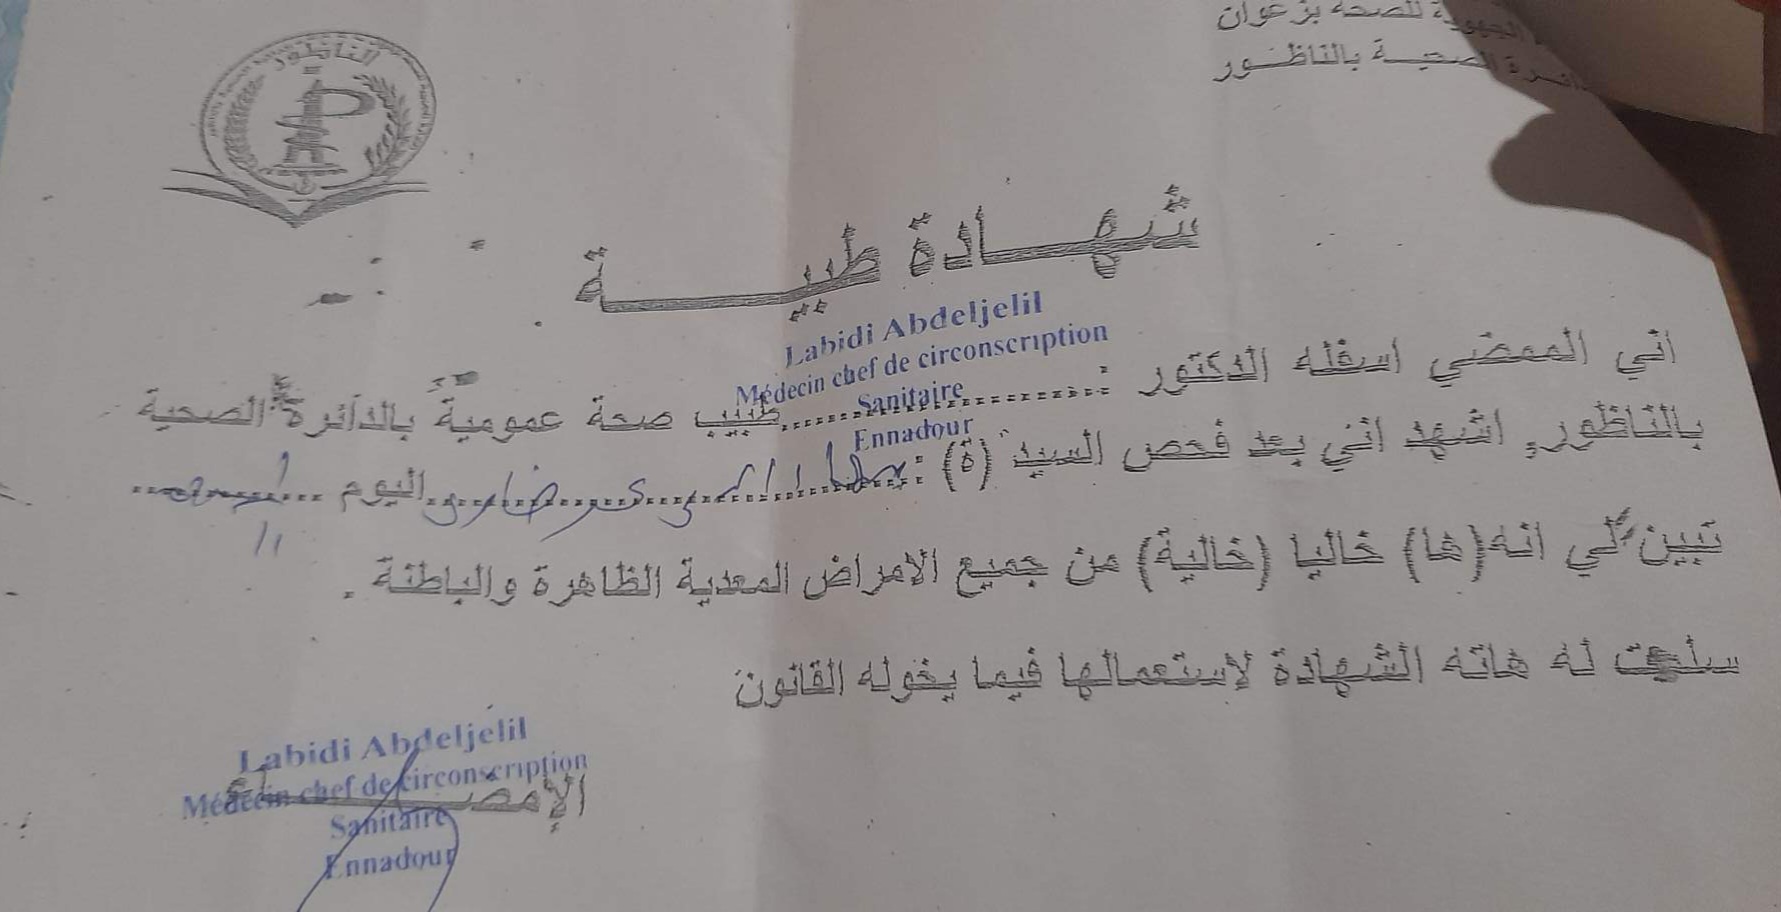 الجهوية للصحة بزغوان
الصحية بالناظور
الناظور
شهادة طبية
Labidi Abdeljelil
Médecin chef de circonscription
Sanitaire
Ennadour
اني الممضي اسفله الدكتور :..........طبيب صحة عمومية بالدائرة الصحية
بالناظور, اشهد انني بعد فحص السيد (ة) :.......... اليوم ..........
تبين لي انه(ها) خاليا (خالية) من جميع الامراض المعدية الظاهرة والباطنة .
سلمت له هاته الشهادة لإستعمالها فيما يخوله القانون
الإمضاء
Labidi Abdeljelil
Médecin chef de circonscription
Sanitaire
Ennadour